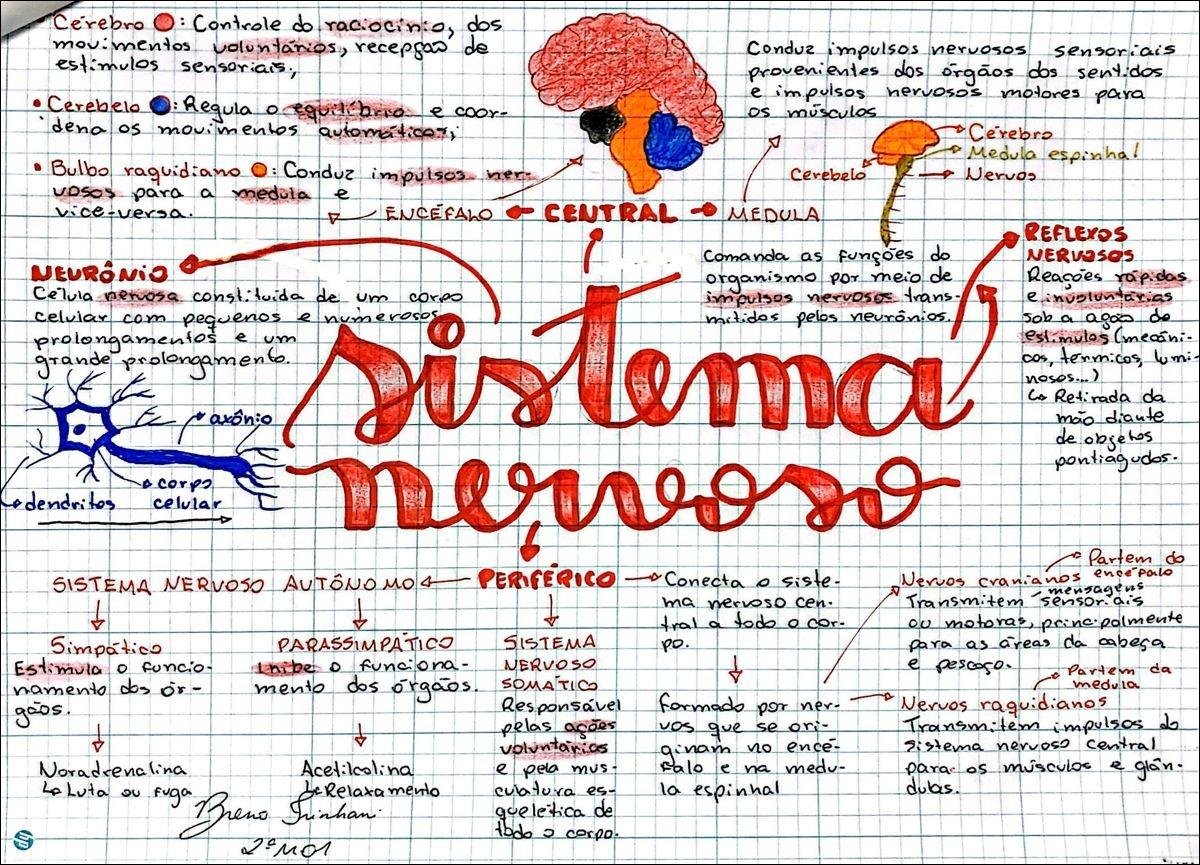 • Cérebro : Controle do raciocínio, dos
movimentos voluntários, recepção de
estímulos sensoriais,
• Cerebelo : Regula o equilíbrio e coor-
dena os movimentos automáticos;
• Bulbo raquidiano : Conduz impulsos ner-
vosos para a medula e
vice-versa.
Conduz impulsos nervosos sensoriais
provenientes dos órgãos dos sentidos
e impulsos nervosos motores para
os músculos
Cérebro
Medula espinhal
Cerebelo
Nervos
ENCÉFALO
CENTRAL
MEDULA
NEURÔNIO
Célula nervosa constituída de um corpo
celular com pequenos e numerosos
prolongamentos e um
grande prolongamento.
axônio
corpo
celular
dendritos
Comanda as funções do
organismo por meio de
impulsos nervosos trans-
mitidos pelos neurônios.
REFLEXOS
NERVOSOS
Reações rápidas
e involuntárias
sob a ação de
estímulos (mecâni-
cos, térmicos, lumi-
nosos...)
↳ Retirada da
mão diante
de objetos
pontiagudos.
sistema
nervoso
SISTEMA NERVOSO AUTÔNOMO
PERIFÉRICO
Simpático
Estimula o funcio-
namento dos ór-
gãos.
Noradrenalina
↳ Luta ou fuga
PARASSIMPÁTICO
Inibe o funciona-
mento dos órgãos.
Acetilcolina
↳ Relaxamento
SISTEMA
NERVOSO
SOMÁTICO
Responsável
pelas ações
voluntárias
e pela mus-
culatura es-
quelética de
todo o corpo.
Conecta o siste-
ma nervoso cen-
tral a todo o cor-
po.
Formado por ner-
vos que se ori-
ginam no encé-
falo e na medu-
la espinhal
Partem do
encéfalo
Nervos cranianos
Transmitem mensagens sensoriais
ou motoras, principalmente
para as áreas da cabeça
e pescoço.
Partem da
medula
Nervos raquidianos
Transmitem impulsos do
sistema nervoso central
para os músculos e glân-
dulas.
Breno
2º M01